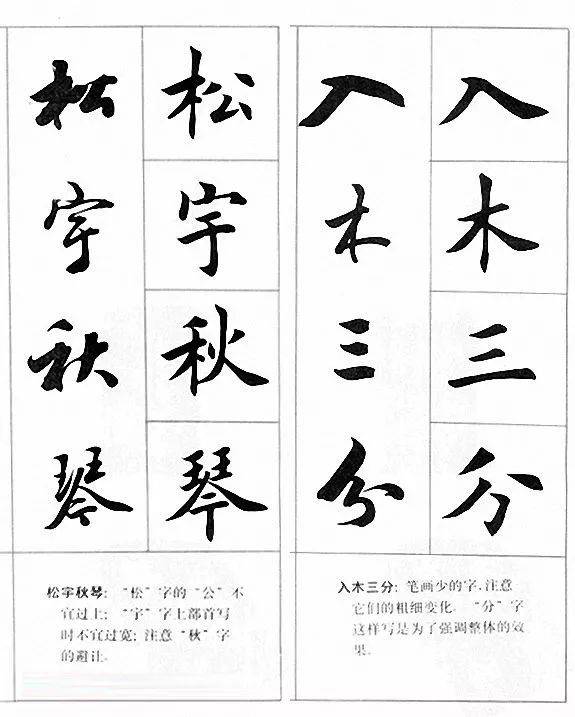 松 松 入 入
宇 宇 木 木
秋 秋 三 三
琴 琴 分 分
松宇秋琴:“松”字的“公”不
宜过上;“宇”字上部首写
时不宜过宽;注意“秋”字
的避让。
入木三分:笔画少的字,注意
它们的粗细变化。“分”字
这样写是为了强调整体的效
果。